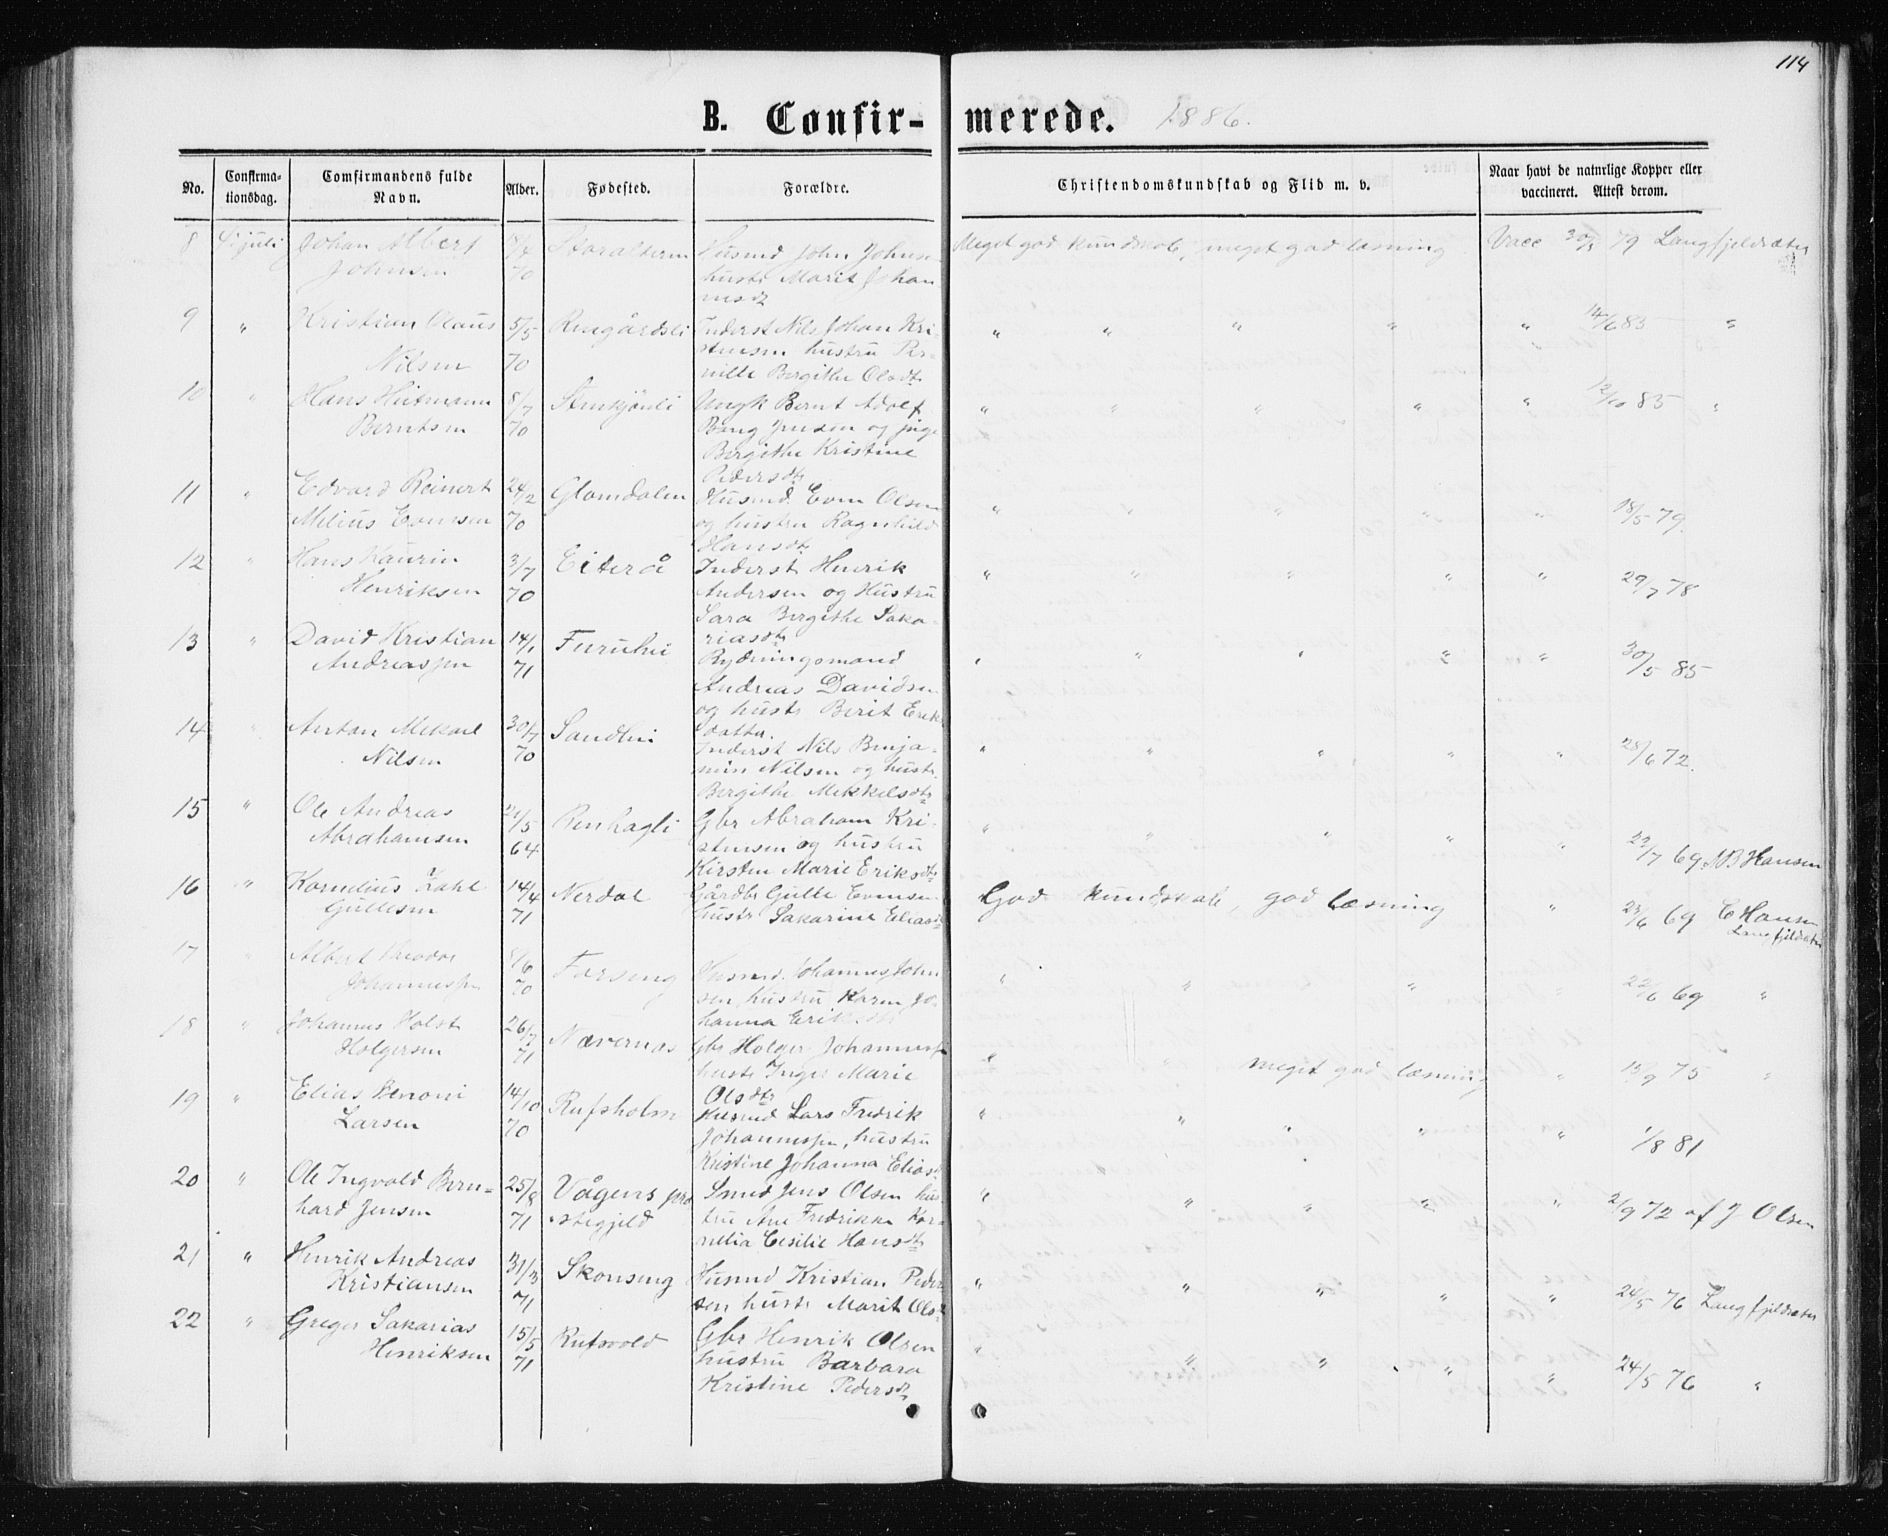 114
B. Confir- merede. 1886.
No. Confirmationsdag. Comfirmandens fulde Navn. Alder. Fødested. Forældre. Christendomskundskab og Flid m. v. Naar havt de naturlige Kopper eller vaccineret. Attest derom.
8 juli Johan Albert Storalteren Husmd John Johns- Meget god kundskab, meget god læsning Vacc 79 Langfjeldsæter
Johnsen 70 hustr Marit Johan
nesdt
9 " Kristian Olaus 5/5 Rengårdsli Inderst Nils Johan Kri- " " " " " 14/6 85 "
Nilsen 70 stensen hustru Per-
nille Bergithe Olsdtr
10 " Hans Hitmann 8/7 Stenkjønli Ungk Bernt Adolf " " " " " 12/10 85 "
Berntsen 70 Bang Jensen og pige
Bergithe Kristine
Pedersdtr
11 " Edvard Reinert 24/2 Glomdalen Husmd Even Olsen " " " " " 18/5 79.
Melius Evensen 70 og hustru Ragnhild
Hansdtr
12 " Hans Kaurin 3/7 Eiterå Inderst Henrik " " " " " 29/7 78
Henriksen 70 Andersen og Hustru
Sara Bergithe Saka-
riasdtr
13 " David Kristian 14/1 Furuhei Rydningsmand " " " " " 30/5 85
Andreassen 71 Andreas Davidsen
og hustr Berit Eriks
datter.
14 " Anton Mekael 30/7 Sandhei Inderst Nils Benja- " " " " " 28/6 72.
Nilsen 70 min Nilsen og hustr.
Bergithe Mekkelsdtr
15 " Ole Andreas 21/5 Renhagli Gbr Abraham Kri- " " " " "
Abrahamsen 64 stensen og hustru 22/7 69 NB Hansen
Kirsten Marie Eriksdtr
16 " Kornelius Zahl 14/4 Nerdal Gårdbr Gulle Evensen God kundskab, god læsning " 23/6 69 C Hansen
Gullesen 71 hustr Sakarine Eliasdt Langfjeldsæter
17 " Albert Theodor 8/6 Forseng Husmd. Johannes John " " " " 22/6 69 "
Johannessen 70 sen, hustru Karen Jo-
hanna Eriksdtr
18 " Johannes Holst 26/7 Nævernæs Gbr Holger Johannessen " " meget god læsning " 13/9 75 "
Holgersen 71 hustr Inger Marie
Olsdtr
19 " Elias Benoni 14/10 Rufsholm Husmd Lars Fredrik " " " " " 1/8 81
Larsen 70 Johannessen, hustru
Kristine Johanna Eliasdt
20 " Ole Ingvald Bern- 25/8 Vågens præ Smed Jens Olsen hus- " " " " " 2/9 72 af J Olsen
hard Jensen 71 stegjeld tru Ane Fredrikke Kor-
nelia Cesilie Hansdtr
21 " Henrik Andreas 31/3 Skonseng Husmd Kristian Peder " " " " " 24/5 76 Langfjeldsæter
Kristiansen 71 sen hustr Marit Olsdt
22 " Greger Sakarias 15/5 Rufsvold Gbr Henrik Olsen " " " " " 24/5 76 "
Henriksen 71 hustru Barbara
Kristine Pedersdt